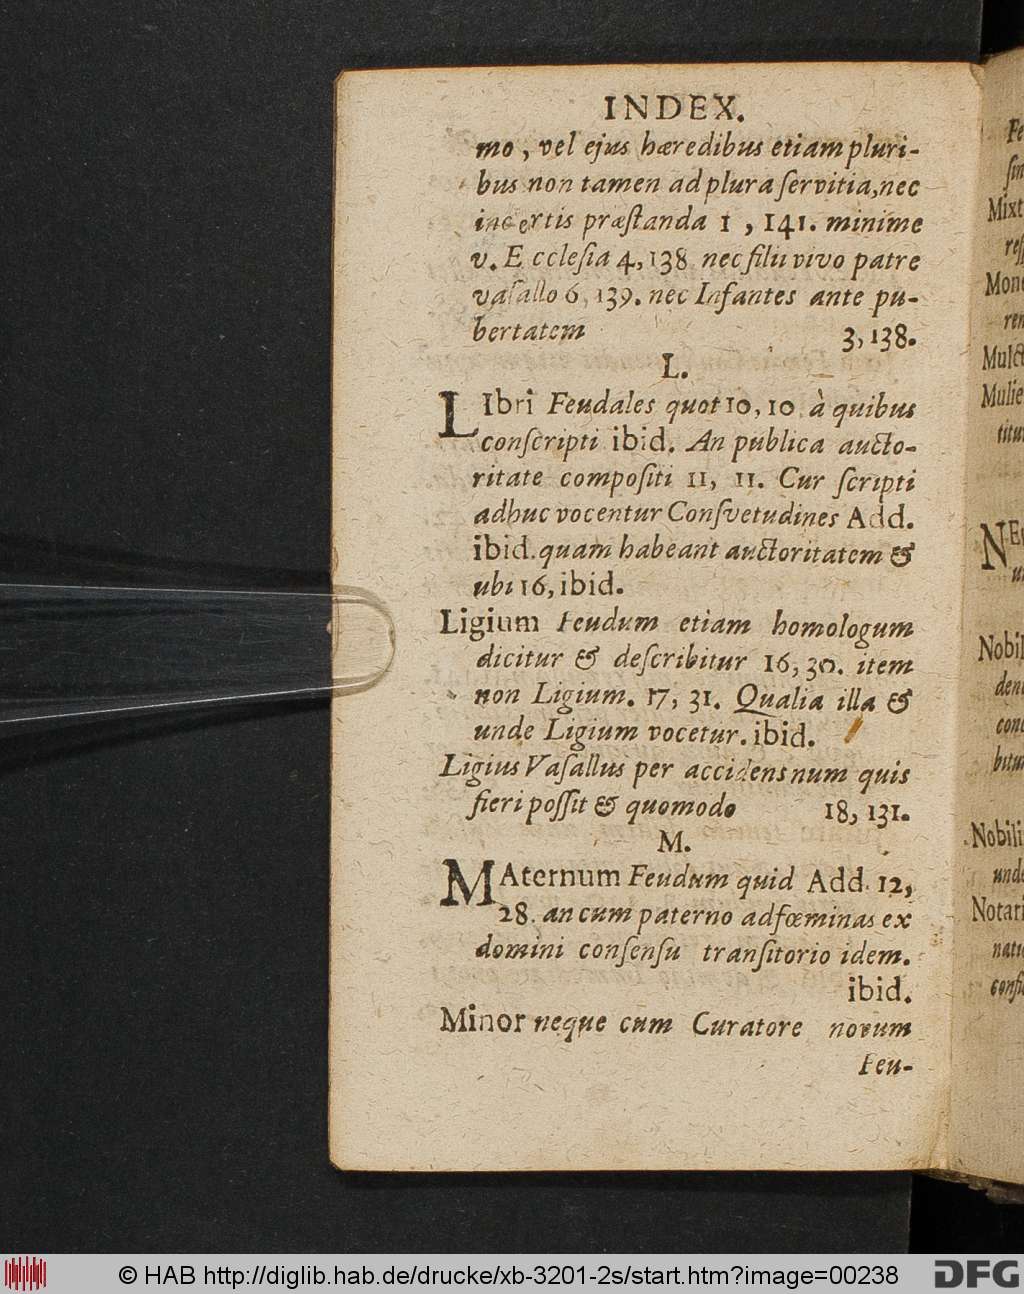 INDEX.
mo, vel ejus hæredibus etiam pluri-
bus non tamen ad plura ſervitia, nec
incertis præſtanda 1, 141. minime
v. Eccleſia 4, 138 nec filii vivo patre
vaſallo 6, 139. nec Infantes ante pu-
bertatem 3, 138.
L.
LIbri Feudales quot 10, 10. à quibus
conſcripti ibid. An publica aucto-
ritate compoſiti 11, 11. Cur ſcripti
adhuc vocentur Conſvetudines Add.
ibid. quam habeant auctoritatem &
ubi 16, ibid.
Ligium Feudum etiam homologum
dicitur & deſcribitur 16, 30. item
non Ligium. 17, 31. Qualia illa &
unde Ligium vocetur. ibid.
Ligius Vaſallus per accidens num quis
fieri poſſit & quomodo 18, 131.
M.
MAternum Feudum quid Add. 12,
28. an cum paterno ad fœminas ex
domini conſenſu tranſitorio idem.
ibid.
Minor neque cum Curatore novum
Feu-
Fe
ſin
Mixt
reſſ
Mone
ren
Mulct
Mulie
titur
NEc
u
Nobil
den
conc
bitur
Nobili
unde
Notari
natio
confi
© HAB http://diglib.hab.de/drucke/xb-3201-2s/start.htm?image=00238
DFG